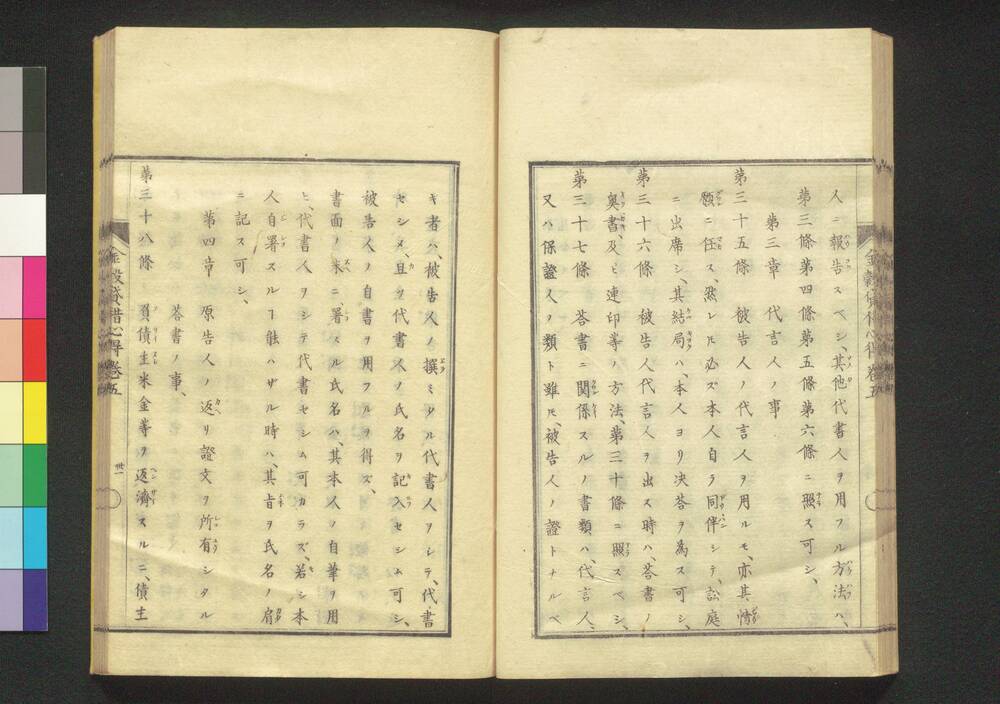 人ニ報告スベシ、其他代書人ヲ用フル方法ハ、
第三條第四條第五條第六條ニ照ス可シ、
第三章 代言人ノ事
第三十五條 被告人ノ代言人ヲ用ルモ、亦其情
願ニ任ス、然レ𪜈必ズ本人自ラ同伴シテ、訟庭
ニ出席シ、其結局ハ、本人ヨリ决答ヲ為ス可シ、
第三十六條 被告人代言人ヲ出ス時ハ、荅書ノ
奥書、及ヒ連印等ノ方法、第三十條ニ照スベシ、
第三十七條 荅書ニ関係スルノ書類ハ、代言人、
又ハ保證人ノ類ト雖𪜈、被告人ノ證トナルベ
キ者ハ、被告人ノ撰ミタル代書人ヲシテ、代書
セシメ、且ツ代書人ノ氏名ヲ記入セシム可シ、
被告人ノ自書ヲ用フルヲ得ズ、
書面ノ末ニ、署スル氏名ハ、其本人ノ自筆ヲ用
ヒ、代書人ヲシテ代書セシム可カラズ、若シ本
人自署スルヿ能ハザル時ハ、其旨ヲ氏名ノ肩
ニ記ス可シ、
第四章 原告人ノ返リ證文ヲ所有シタル
荅書ノ事、
第三十八條 負債主米金等ヲ返濟スルニ、債主
金穀貸借心得 卷五
卅一
金穀貸借心得 卷五